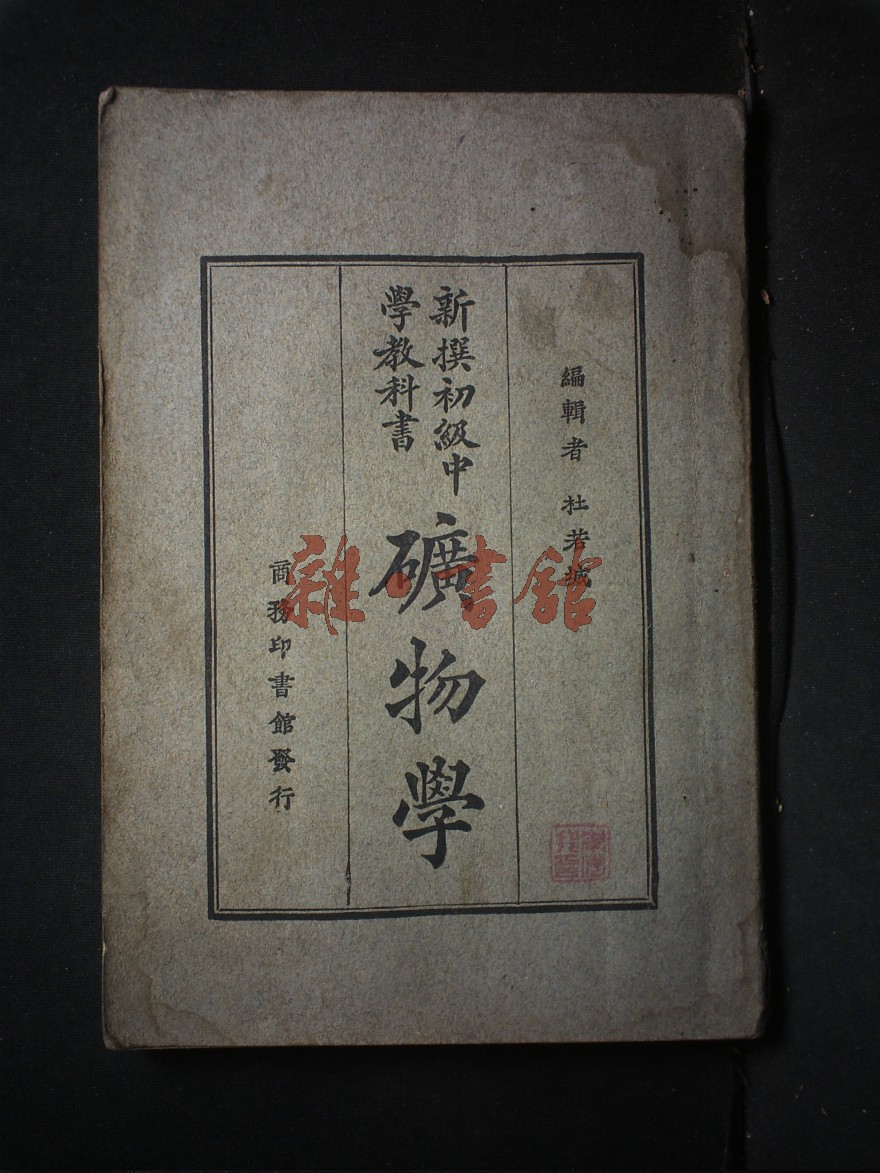 編輯者 杜若城
新撰初級中
學教科書
礦物學
商務印書館發行
雜·書館